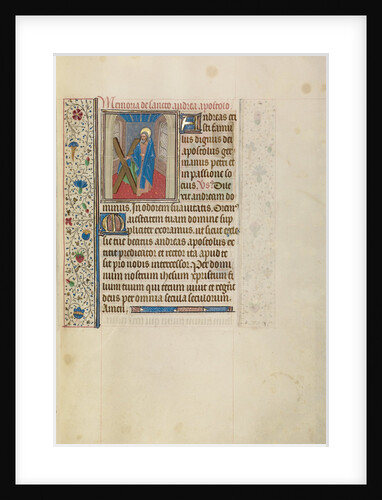 Memoria de sancto andrea apostolo
Andreas cri
sti famu
lus dignus dei
apostolus ger
manus petri et
in passione so
cius. Vs Dile
xit andream do
minus. In odorem suavitatis. Orem
Maiestatem tuam domine sup
pliciter exoramus. ut sicut eccle
sie tue beatus andreas apostolus ex
titit predicator et rector ita apud te
sit pro nobis intercessor. Per domi
num nostrum ihesum xpristum fi
lium tuum qui tecum vivit et regnat
deus per omnia secula seculorum.
Amen.